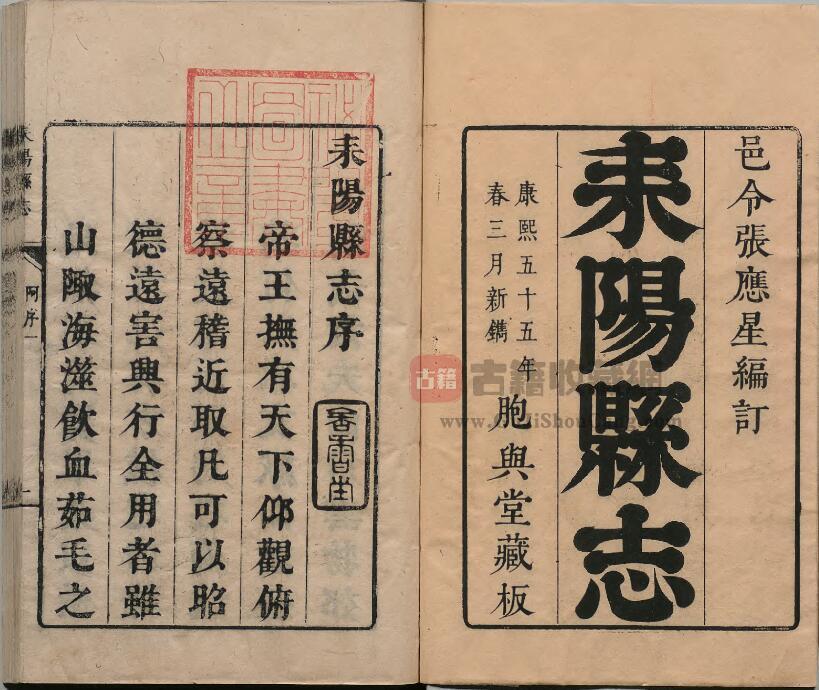 邑令張應星編訂
耒陽縣志
康熙五十五年
春三月新鐫
胞與堂藏板
耒陽縣志序
帝王撫有天下仰觀俯
察遠稽近取凡可以昭
德遠害興行全用者雖
山陬海澨飲血茹毛之
耒陽縣志
阿序
一
古籍 古籍收藏網